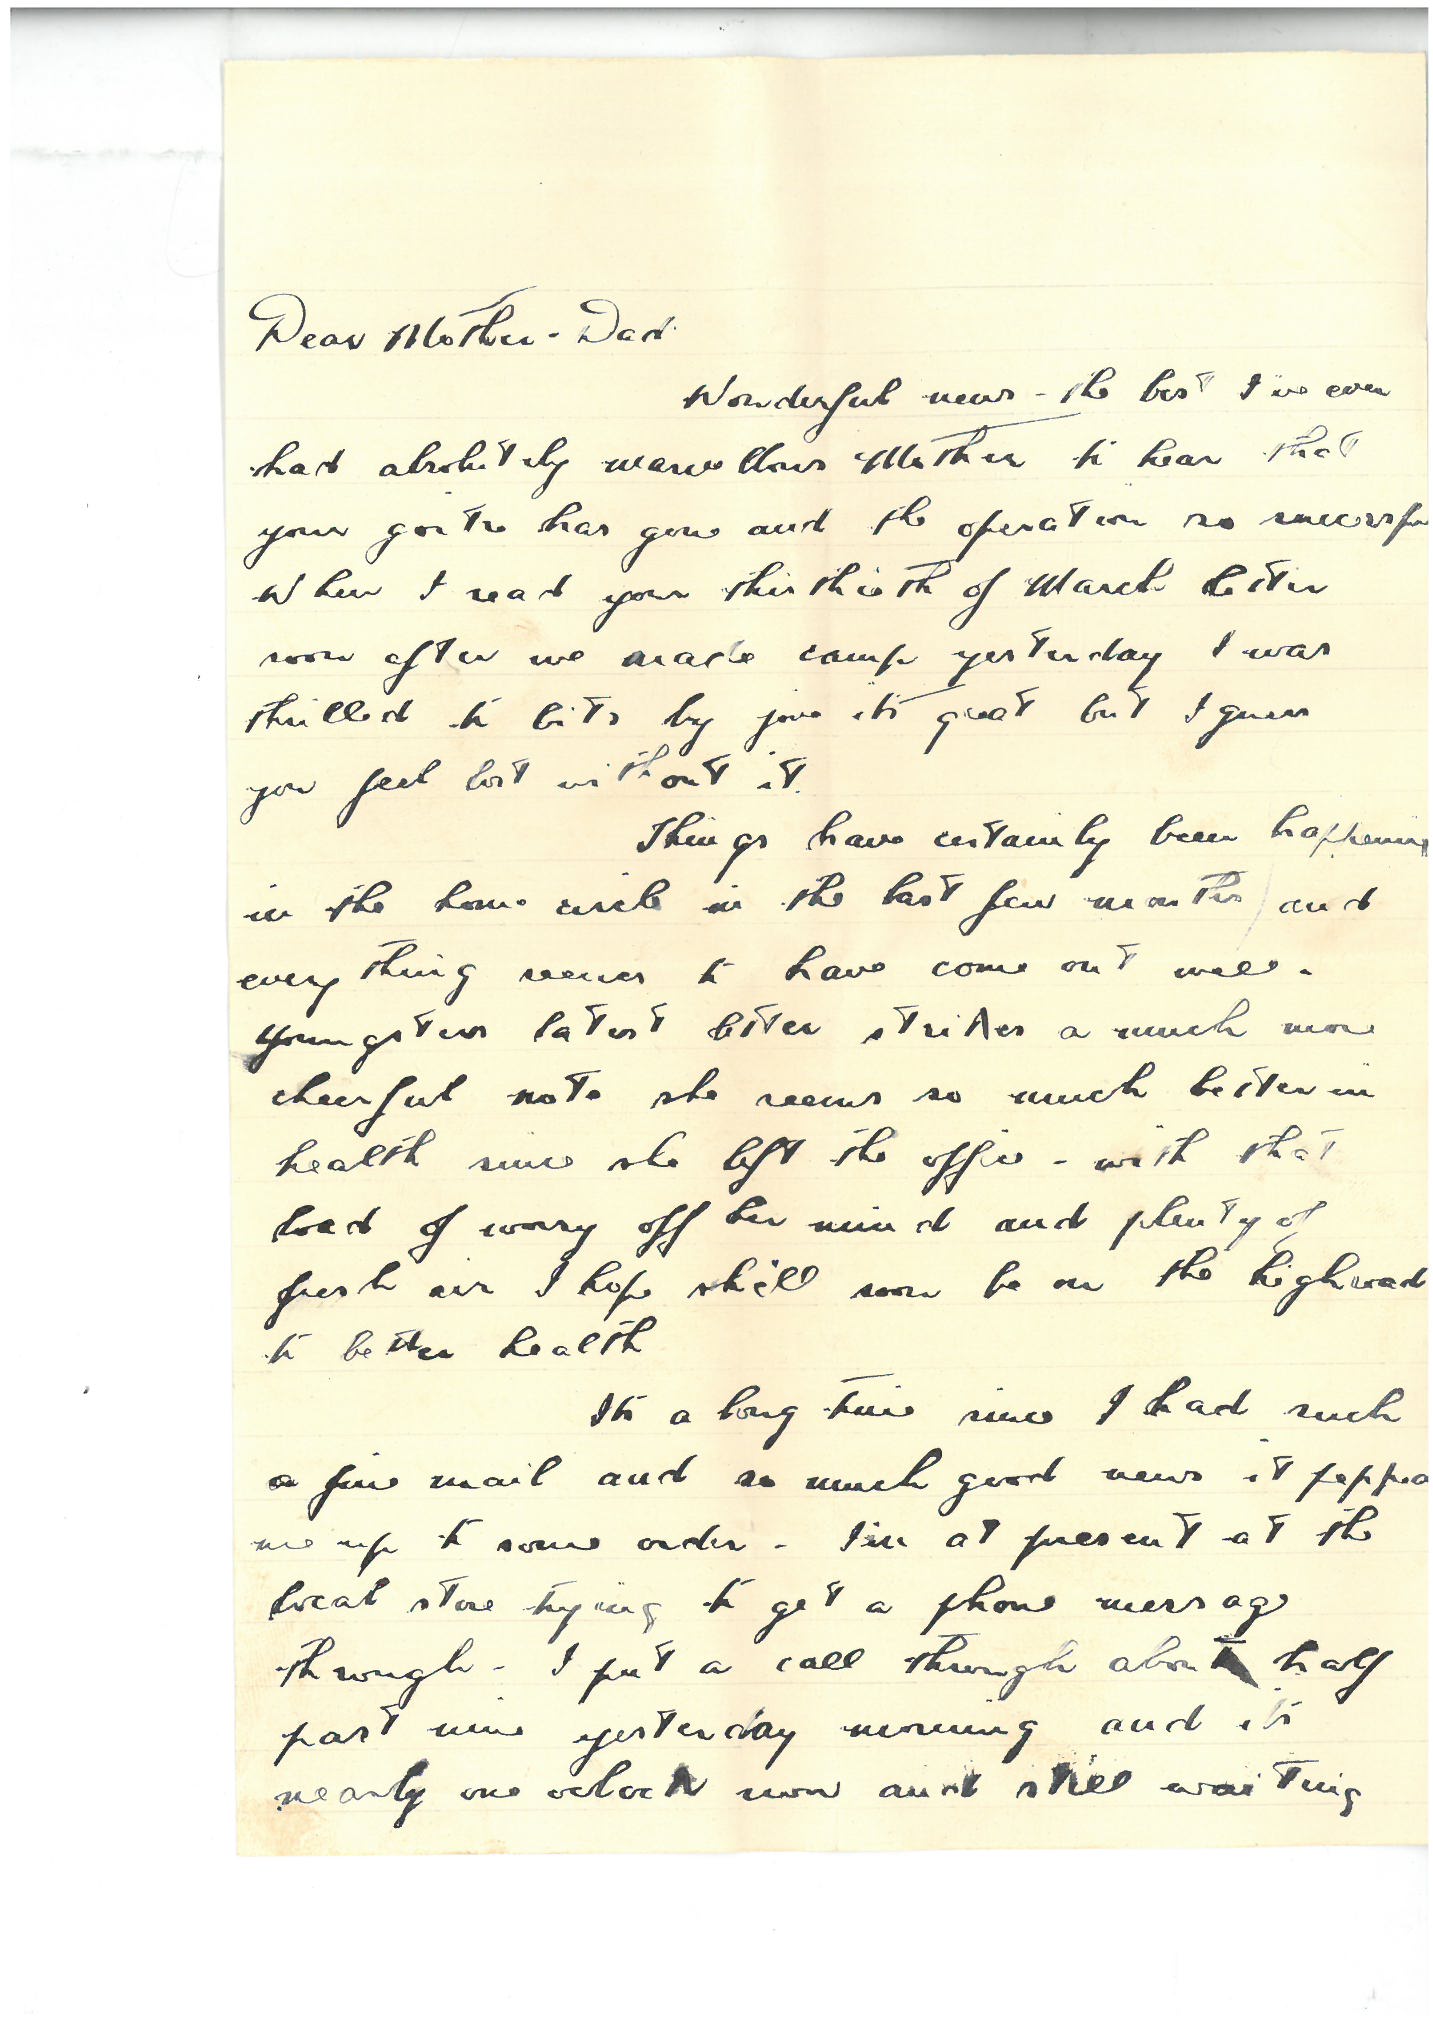 Dear Mother - Dad
Wonderful news - the best I've ever
had absolutely marvellous Mother to hear that
your goitre has gone and the operation so successfu
When I read your thirthieth of March letter
soon after we made camp yesterday I was
thrilled to bits by jove its great but I guess
you feel lost without it.
Things have certainly been happening
in the home circle in the last few months and
every thing seems to have come out well.
Youngsters latest letter strikes a much more
cheerful note she seems so much better in
health since she left the office - with that
load of worry off her mind and plenty of
fresh air I hope she'll soon be on the highroad
to better health
Its a long time since I had such
a fine mail and so much good news it peppe
me up to some order - I'm at present at the
local store trying to get a phone message
through - I put a call through about half
past nine yesterday morning and its
nearly one oclock now and still waiting